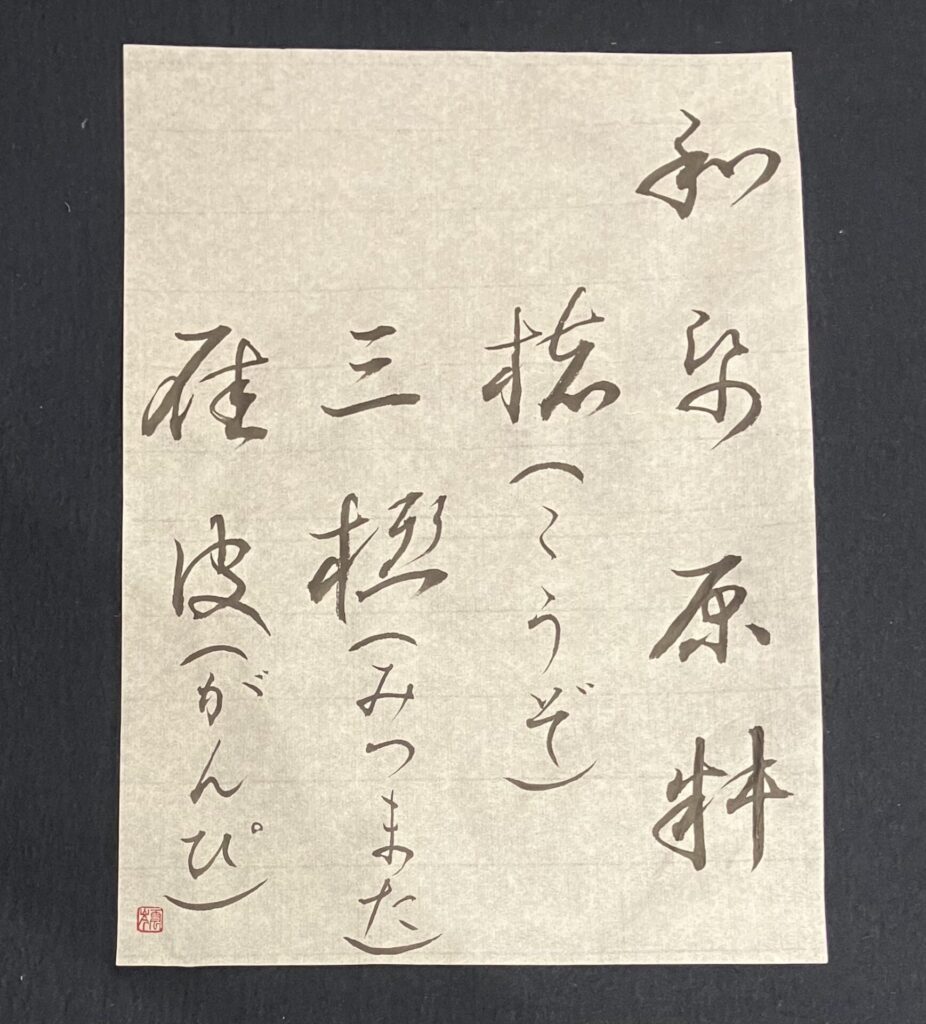 和帋原料
楮(こうぞ)
三椏(みつまた)
雁皮(がんぴ)